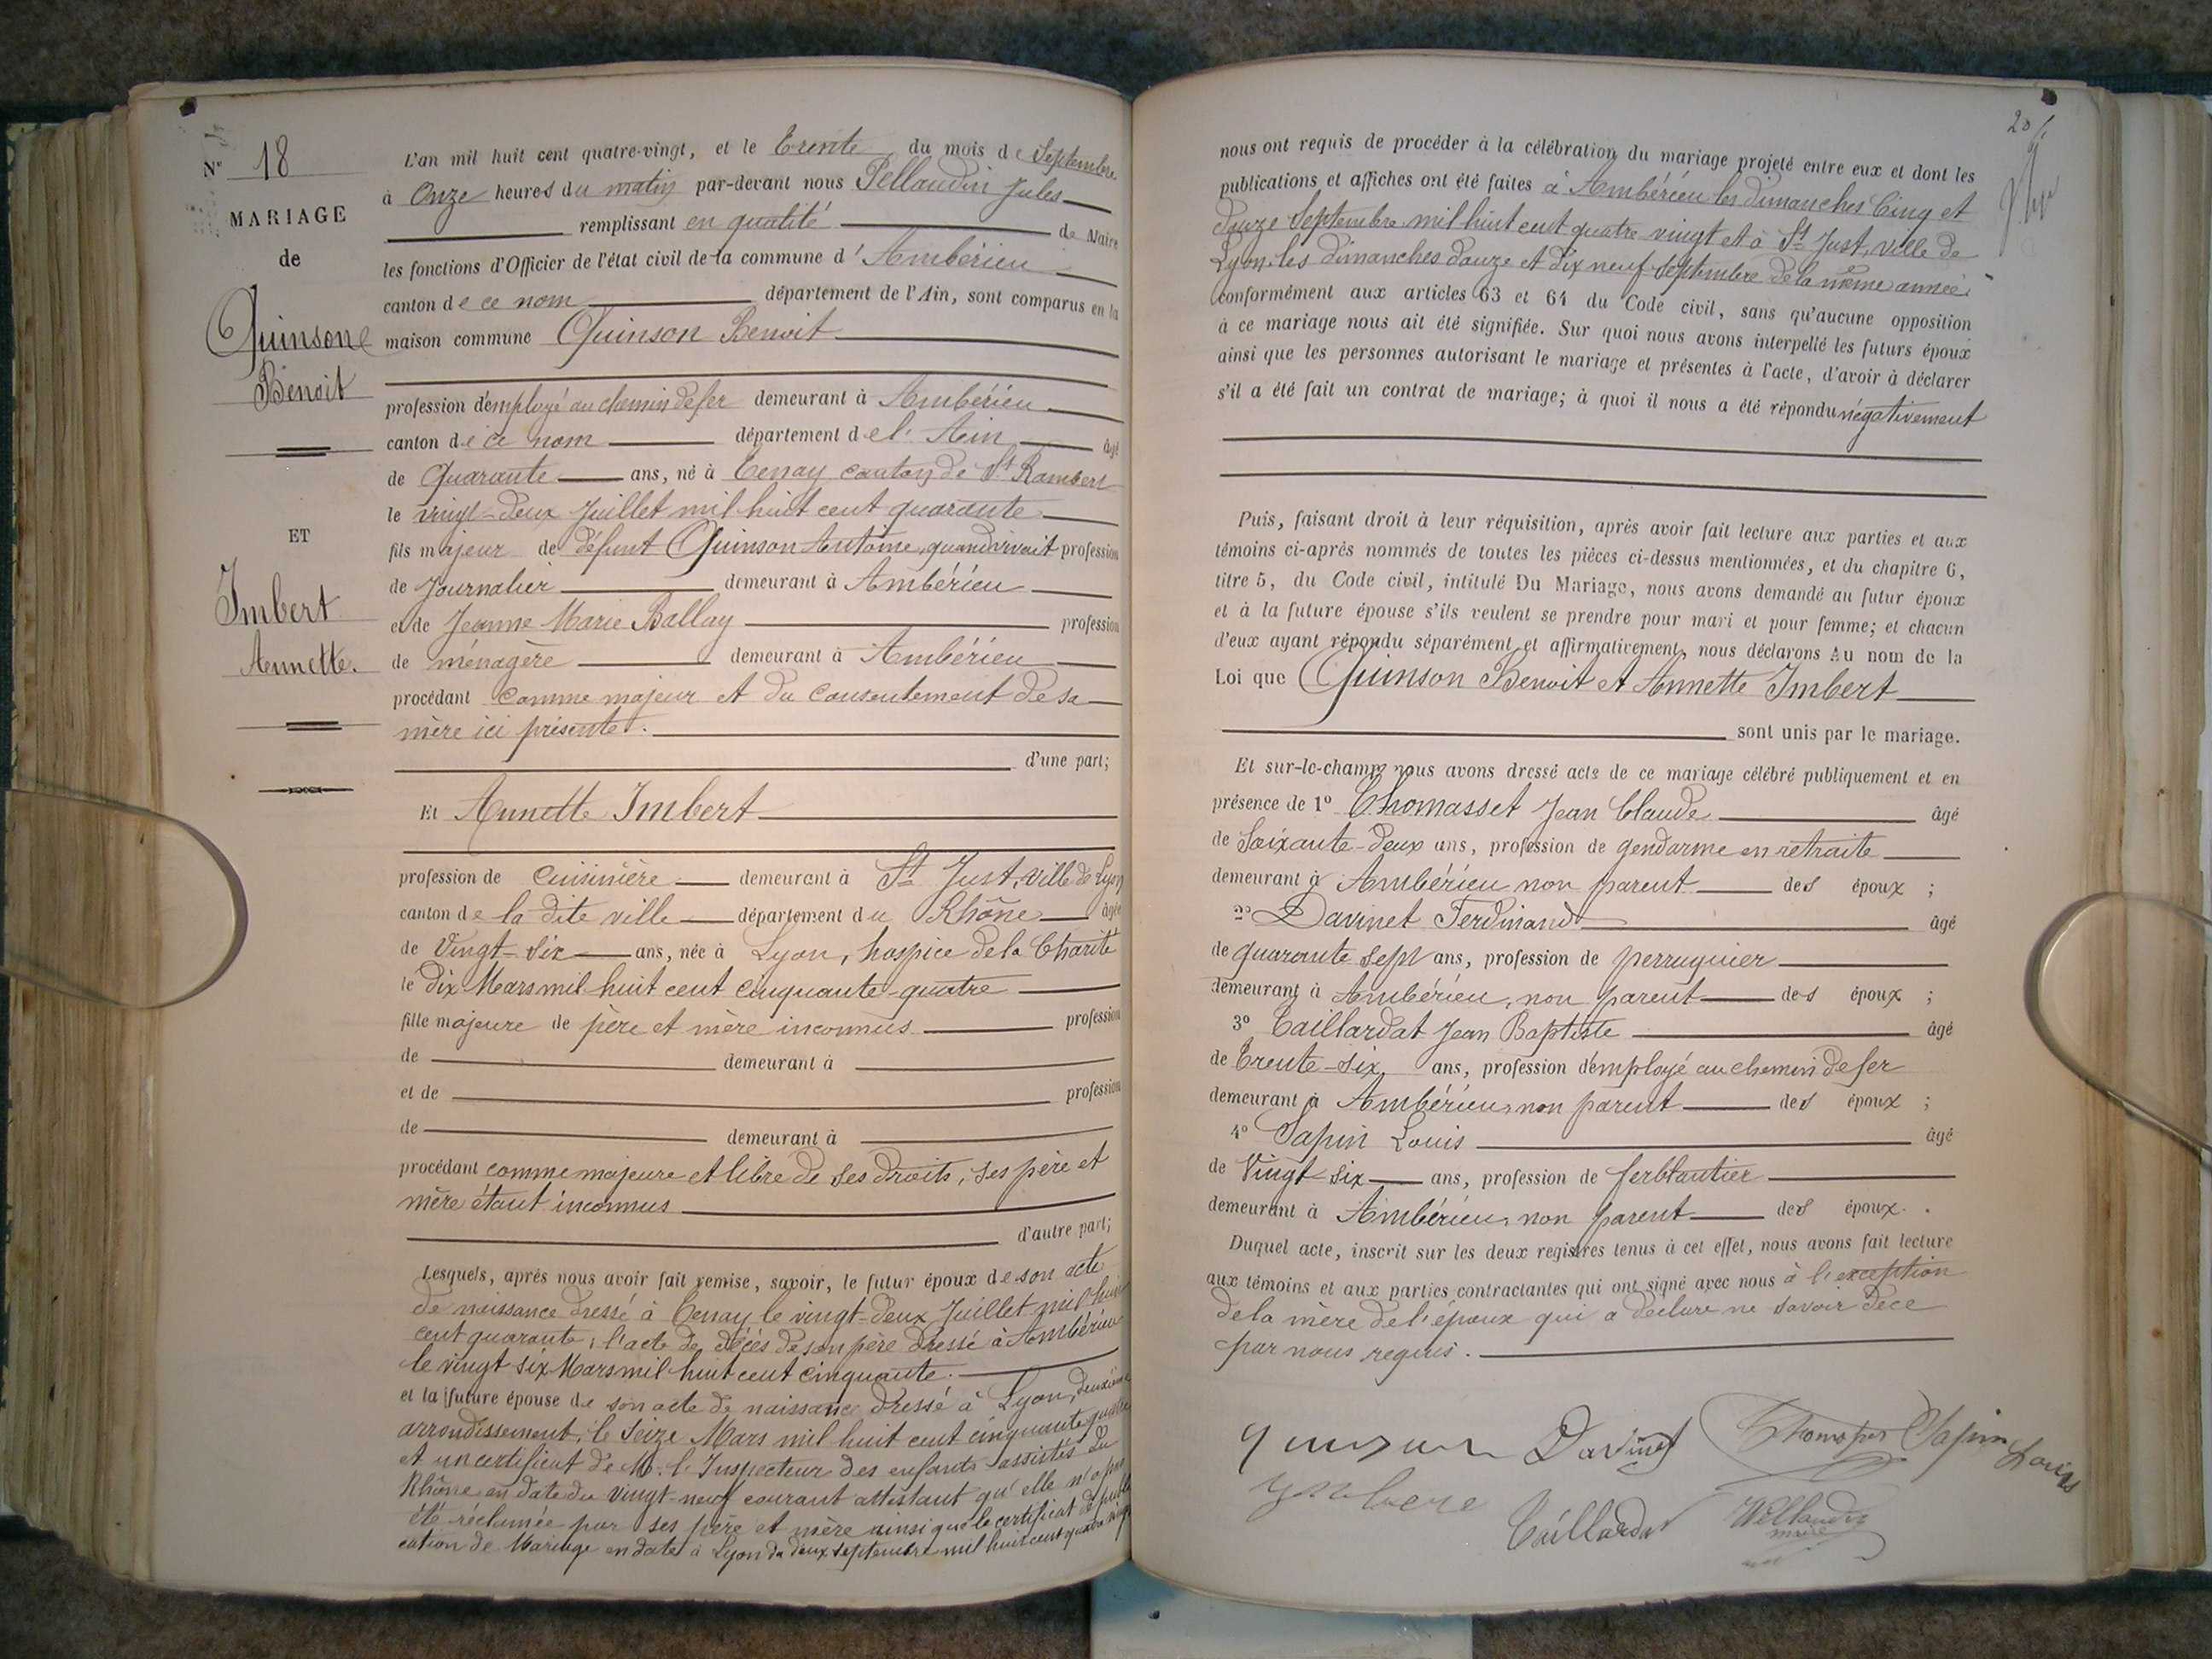 N° 18
MARIAGE
de
Quinson
Benoit
ET
Imbert
Annette.
L'an mil huit cent quatre-vingt, et le Trente du mois de Septembre
à Onze heures du matin par-devant nous Pellaudin Jules
remplissant en qualité de Maire
les fonctions d'Officier de l'état civil de la commune d'Ambérieu
canton de ce nom département de l'Ain, sont comparus en la
maison commune Quinson Benoit
profession d'employé au chemin de fer demeurant à Ambérieu
canton de ce nom département de l'Ain âgé
de Quarante ans, né à Tenay canton de St Rambert
le vingt-deux Juillet mil huit cent quarante
fils majeur de défunt Quinson Antoine, quand vivait profession
de Journalier demeurant à Ambérieu
et de Jeanne Marie Ballay profession
de ménagère demeurant à Ambérieu
procédant comme majeur et du consentement de sa
mère ici présente.
d'une part;
Et Annette Imbert
profession de cuisinière demeurant à St Just, ville de Lyon
canton de la dite ville département du Rhône âgée
de Vingt-six ans, née à Lyon, hospice de la Charité
le dix Mars mil huit cent cinquante-quatre
fille majeure de père et mère inconnus profession
de demeurant à
et de profession
de demeurant à
procédant comme majeure et libre de ses droits, ses père et
mère étant inconnus
d'autre part;
Lesquels, après nous avoir fait remise, savoir, le futur époux de son acte
de naissance dressé à Tenay le vingt-deux Juillet mil huit
cent quarante; l'acte de décès de son père dressé à Ambérieu
le vingt six Mars mil huit cent cinquante.
et la future épouse de son acte de naissance dressé à Lyon, deuxième
arrondissement, le Seize Mars mil huit cent cinquante quatre
et un certificat de M. l'Inspecteur des enfants assistés du
Rhône en date du vingt-neuf courant attestant qu'elle n'a pas
été réclamée par ses père et mère ainsi que le certificat de publi
cation de Mariage en date à Lyon du deux septembre mil huit cent quatre vingt
20
nous ont requis de procéder à la célébration du mariage projeté entre eux et dont les
publications et affiches ont été faites à Ambérieu les dimanches Cinq et
douze Septembre mil huit cent quatre vingt et à St Just, ville de
Lyon les dimanches douze et dix neuf septembre de la même année
conformément aux articles 63 et 64 du Code civil, sans qu'aucune opposition
à ce mariage nous ait été signifiée. Sur quoi nous avons interpellé les futurs époux
ainsi que les personnes autorisant le mariage et présentes à l'acte, d'avoir à déclarer
s'il a été fait un contrat de mariage; à quoi il nous a été répondu négativement
Puis, faisant droit à leur réquisition, après avoir fait lecture aux parties et aux
témoins ci-après nommés de toutes les pièces ci-dessus mentionnées, et du chapitre 6,
titre 5, du Code civil, intitulé Du Mariage, nous avons demandé au futur époux
et à la future épouse s'ils veulent se prendre pour mari et pour femme; et chacun
d'eux ayant répondu séparément et affirmativement, nous déclarons Au nom de la
Loi que Quinson Benoit et Annette Imbert
sont unis par le mariage.
Et sur-le-champ nous avons dressé acte de ce mariage célébré publiquement et en
présence de 1° Thomasset Jean Claude âgé
de Soixante-deux ans, profession de gendarme en retraite
demeurant à Ambérieu non parent des époux ;
2° Davinet Ferdinand âgé
de quarante sept ans, profession de perruquier
demeurant à Ambérieu, non parent des époux ;
3° Taillardat Jean Baptiste âgé
de Trente-six ans, profession d'employé au chemin de fer
demeurant à Ambérieu, non parent des époux ;
4° Sapin Louis âgé
de Vingt six ans, profession de ferblantier
demeurant à Ambérieu, non parent des époux.
Duquel acte, inscrit sur les deux registres tenus à cet effet, nous avons fait lecture
aux témoins et aux parties contractantes qui ont signé avec nous à l'exception
de la mère de l'époux qui a déclaré ne savoir de ce
par nous requis.
quinson Davinet Thomasset Sapin Louis
ymbere Taillardat Pellaudin
maire